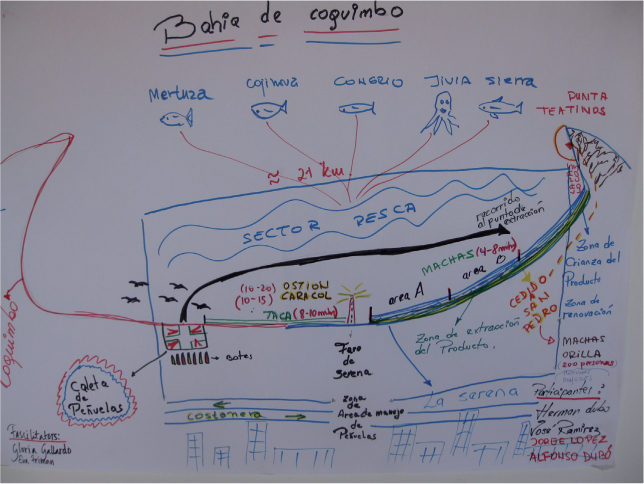 Bahia de coquimbo
Merluza
Cojinova
CONGRIO
JIVIA
Sierra
PUNTA
TEATINOS
≈ 21 km.
SECTOR PESCA
recorrido
al punto de
extracción
MACHAS (4-8 mts)
area B
area A
(10-20) OSTION
(10-15) CARACOL
TACA (8-10 mts)
Faro
de
Serena
Botes
Caleta
de
Peñuelas
Coquimbo
Zona de extracción
del Producto.
CEDIDO A
SAN
PEDRO
Zona de
Crianza del
Producto
Zona de
renovación
MACHAS
ORILLA
200 personas
La Serena
Zona
de
Area de manejo
de
Peñuelas
Costanera
Participantes:
Herman
José Ramirez
JORGE LOPEZ
ALFONSO DUBÓ
Facilitators:
Gloria Gallardo
Eva Friman